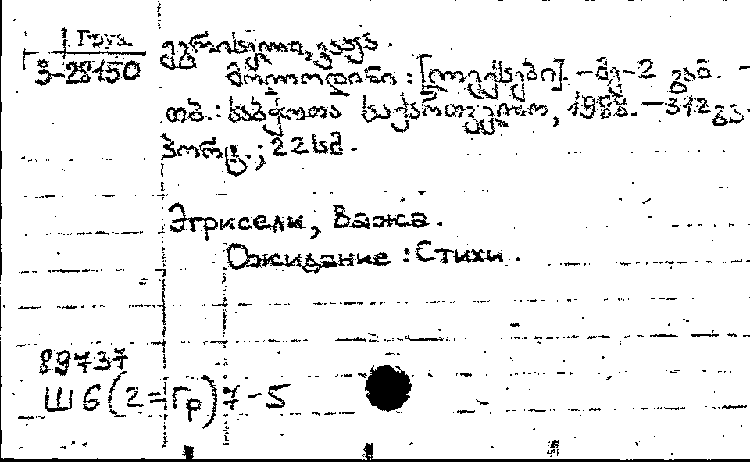 Груз.
3-28150
ეგრისელი, ვაჟა.
მოლოდინი : [ლექსები]. - მე-2 გამ. -
თბ. : საბჭოთა საქართველო, 1988. - 312 გვ.
პორტ. ; 22 სმ.
Эгрисели, Важа.
Ожидание : Стихи.
89737
Ш6(2=Гр)7-5